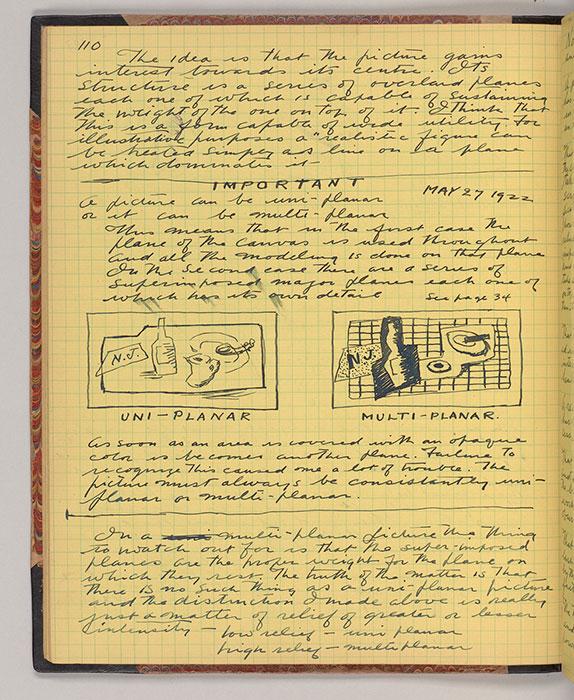 110
The idea is that the picture gains
interest towards its centre. Its
structure is a series of overlaid planes
each one of which is capable of sustaining
the weight of the one on top of it. I think that
this is a form capable of wide utility for
illustrative purposes a "realistic figure can
be treated simply as line on a plane
which dominates it
IMPORTANT
MAY 27 1922
A picture can be uni-planar
or it can be multi-planar
This means that in the first case the
plane of the canvas is used throughout
and all the modeling is done on that plane
In the second case there are a series of
superimposed major planes each one of
which has its own detail
See page 34
N.J.
N.J.
UNI-PLANAR
MULTI-PLANAR.
As soon as an area is covered with an opaque
color is becomes another plane. Failure to
recognize this caused me a lot of trouble. The
picture must always be consistantly uni-
planar or multi-planar.
In a multi-planar picture the thing
to watch out for is that the super-imposed
planes are the proper weight for the plane on
which they rest. The truth of the matter is that
there is no such thing as a uni-planar picture
and the distinction I made above is really
just a matter of relief of greater or lesser
intensity - low relief - uni planar
high relief - multi planar